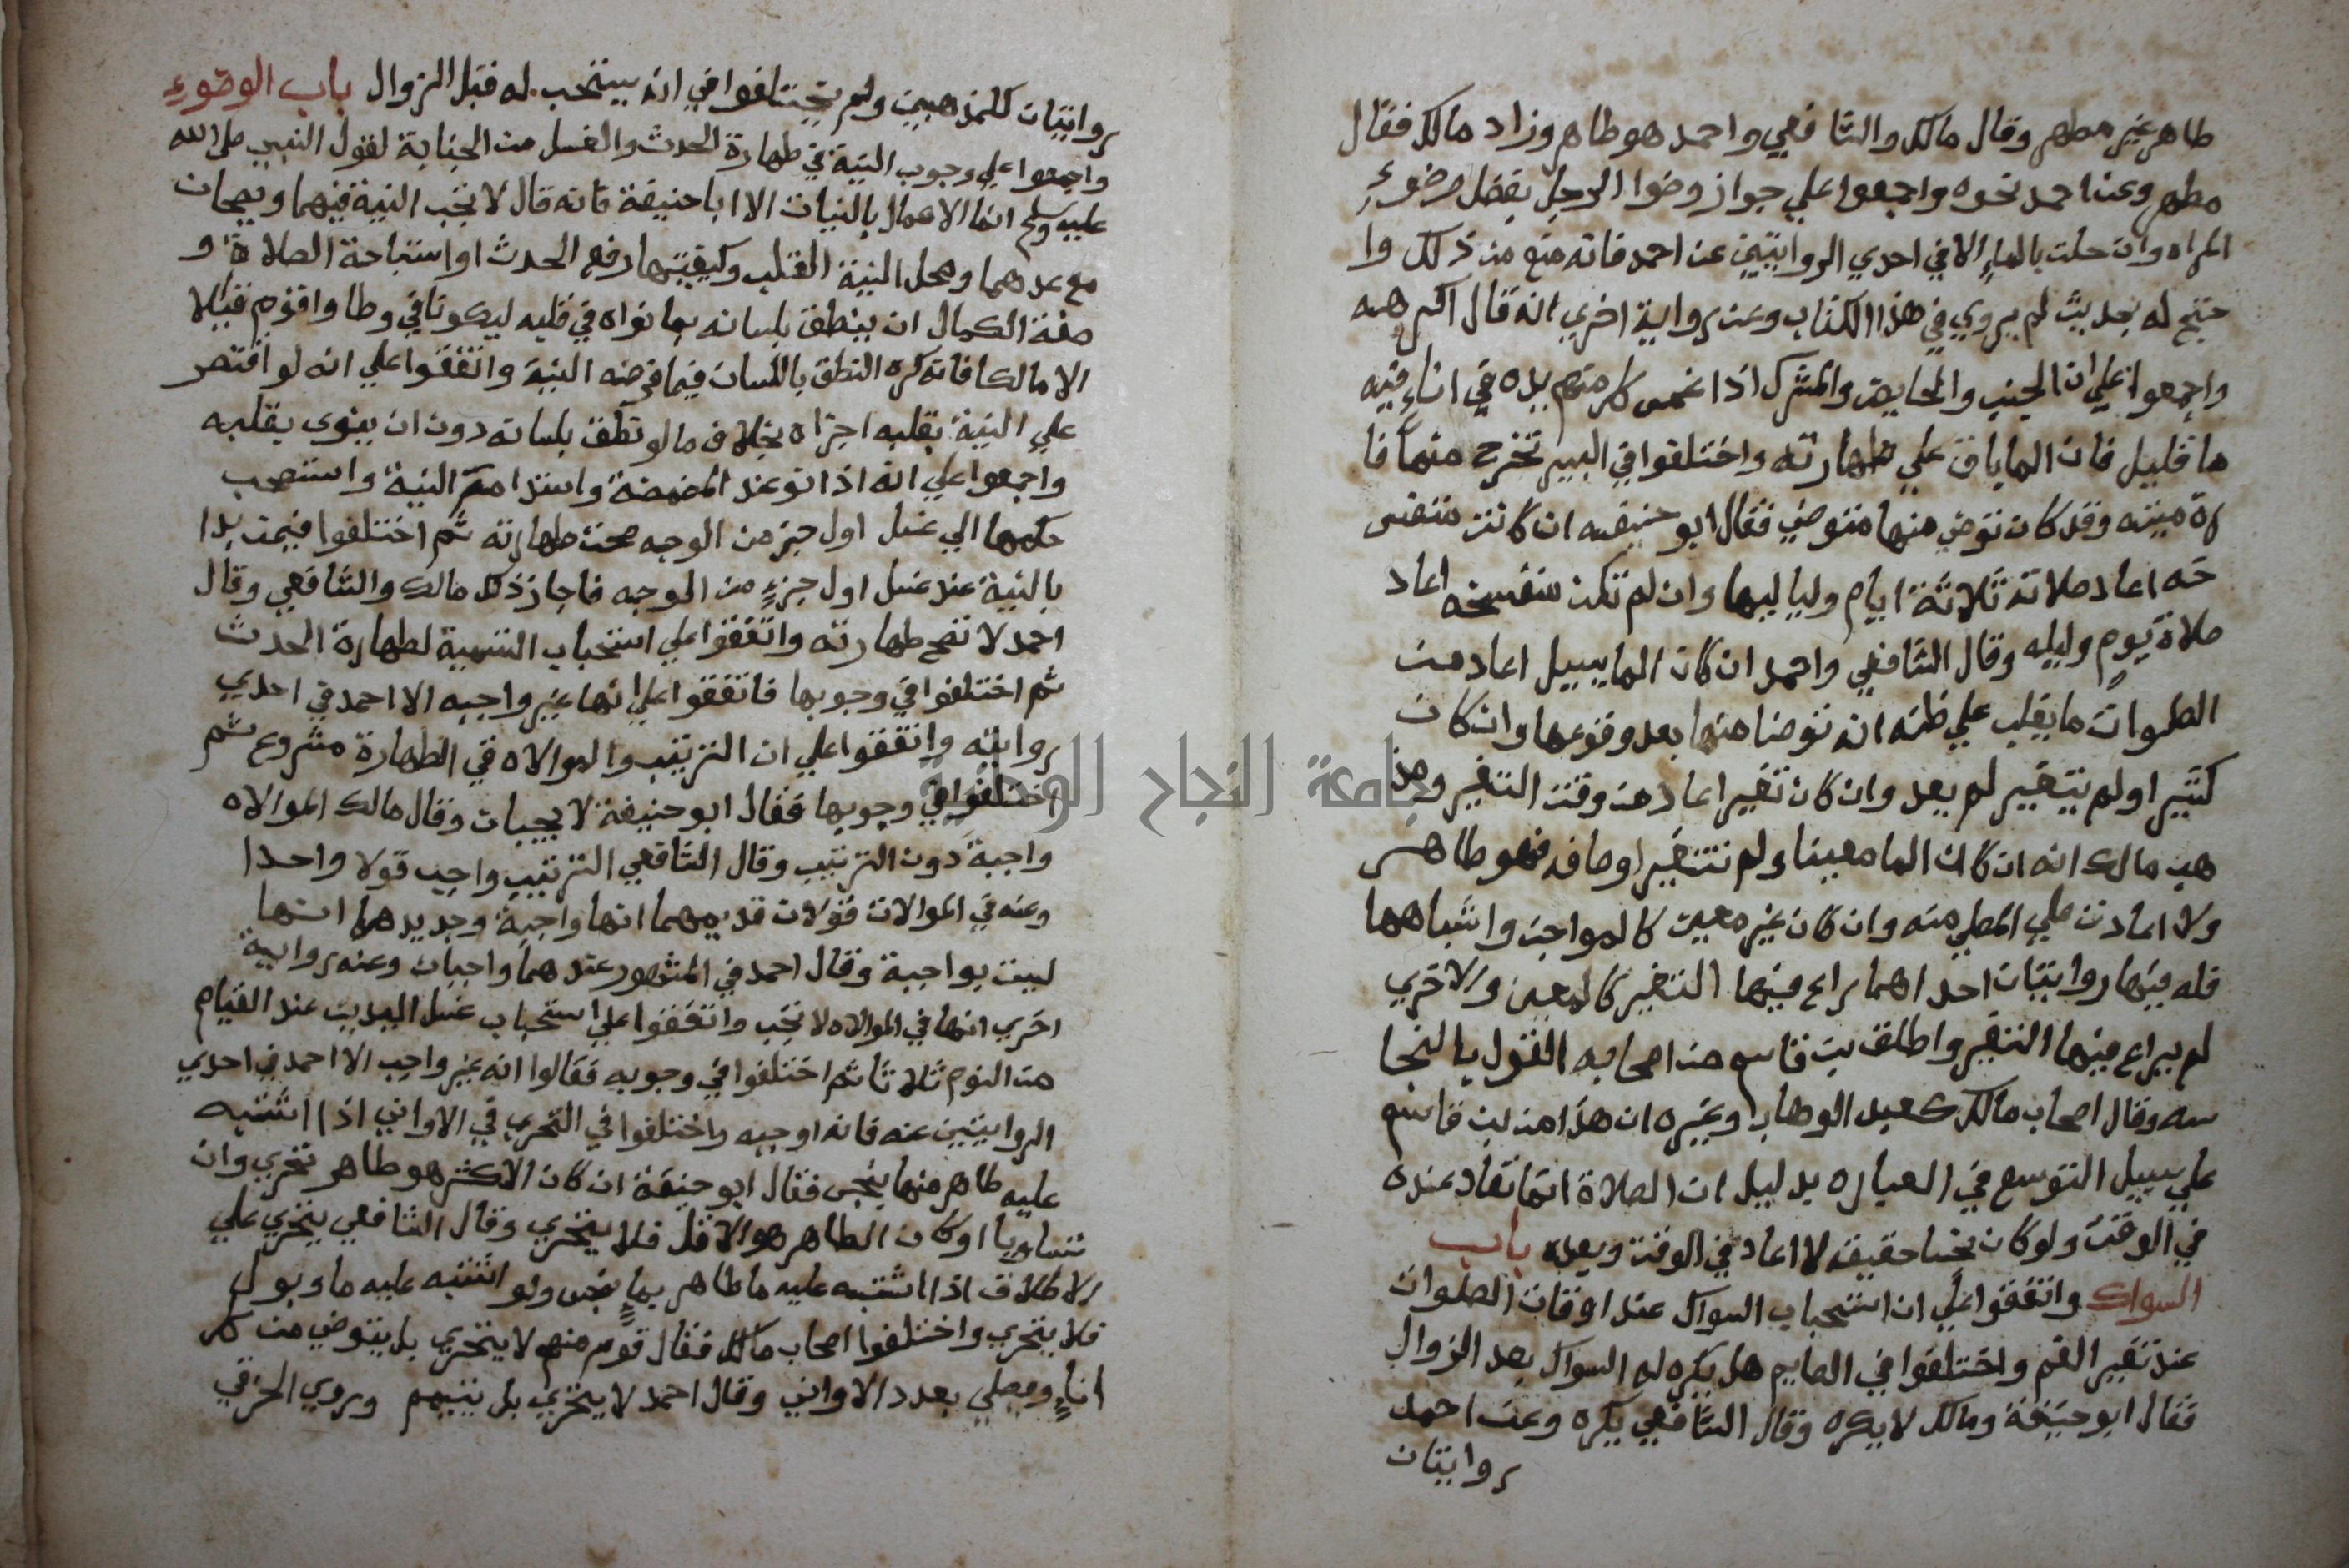 طاهر غير مطهر وقال مالك والشافعي واحمد هو طاهر وزاد مالك فقال
مطهر وعن احمد نحوه واجمعوا علي جواز وضوا الرجل بفضل وضوءِ
المراه وان خلت بالماءِ الا في احدي الروايتين عن احمد فانه منع من ذلك وا
حتج له بحديث لم يروي في هذا الكتاب وعن رواية اخري انه قال اكرهه
واجمعوا علي ان الجنب والحايض والمشرك اذا غمس كل منهم يده في اناءِ فيه
ما قليل فان الما باق علي طهارته واختلفوا في البير تخرج منها فا
رة ميته وقد كان توضي منها متوضي فقال ابو حنيفه ان كانت متفس
خه اعاد صلاته ثلاثة ايام ولياليها وان لم تكن متفسخه اعاد
صلاة يومٍ وليله وقال الشافعي واحمد ان كان الما يسيل اعاد من
الصلوات ما يغلب علي ظنه انه توضا منها بعد وقوعها وان كان
كثير اولم يتغير لم يعد وان كان تغير اعاد من وقت التغير ومذ
هب مالك انه ان كان الما معينا ولم تتغير اوصافه فهو طاهر
ولا اعادت علي المصلي منه وان كان غير معين كالمواجن واشباهها
فله فيها روايتان احداهما يراع فيها التغير كالمعين والاخري
لم يراع فيها التغير واطلق بن قاسم من اصحابه القول بالنجا
سه وقال اصحاب مالك كعبد الوهاب وغيره ان هذا من بن قاسم
علي سبيل التوسع في العباره بدليل ان الصلاة انما تعاد عنده
في الوقت ولو كان نجسا حقيقه لا اعاد في الوقت وبعده باب
السواك واتفقوا علي ان استحباب السواك عند اوقات الصلوات
عند تغير الفم واختلفوا في الصايم هل يكره له السواك بعد الزوال
فقال ابو حنيفة ومالك لا يكره وقال الشافعي يكره وعن احمد
روايتان
روايتان كالمذهبين ولم يختلفوا في انه يستحب له قبل الزوال باب الوضوءِ
واجمعوا علي وجوب النية في طهارة الحدث والغسل من الجنابة لقول النبي صلى الله
عليه وسلم انما الاعمال بالنيات الا ابا حنيفة فانه قال لا تجب النية فيهما ويصحان
مع عدمهما ومحل النية القلب وكيفيتها رفع الحدث او استباحة الصلاة و
صفة الكمال ان ينطق بلسانه بما نواه في قلبه ليكونا في وطا واقوم قيلا
الا مالكا فانه كره النطق باللسان فيما فرضه النية واتفقوا علي انه لو اقتصر
علي النية بقلبه اجزاه بخلاف ما لو نطق بلسانه دون ان ينوي بقلبه
واجمعوا علي انه اذا نو عند المضمضة واستدامة النية واستصحب
حكمها الي غسل اول جزءٍ من الوجه صحت طهارته ثم اختلفوا فيمن بدا
بالنية عند غسل اول جزءٍ من الوجه فاجاز ذلك مالك والشافعي وقال
احمد لا تصح طهارته واتفقوا علي استحباب التسمية لطهارة الحدث
ثم اختلفوا في وجوبها فاتفقوا علي انها غير واجبه الا احمد في احدي
روايتيه واتفقوا علي ان الترتيب والموالاه في الطهارة مشروع ثم
اختلفوا في وجوبها فقال ابو حنيفة لا يجبان وقال مالك الموالاه
واجبة دون الترتيب وقال الشافعي الترتيب واجب قولا واحدا
وعنه في الموالات قولان قديمهما انها واجبة وجديدهما انها
ليست بواجبة وقال احمد في المشهور عنه هما واجبان وعنه رواية
اخري انها في الموالاه لا تجب واتفقوا علي استحباب غسل اليدين عند القيام
من النوم ثلاثا ثم اختلفوا في وجوبه فقالوا انه غير واجب الا احمد في احدي
الروايتين عنه فانه اوجبه واختلفوا في التحري في الاواني اذا اشتبه
عليه طاهر منها بنجس فقال ابو حنيفة ان كان الاكثر هو طاهر تحري وان
تساويا او كان الطاهر هو الاقل فلا يتحري وقال الشافعي يتحري علي
الاطلاق اذا اشتبه عليه ما طاهر بماءٍ نجس ولو اشتبه عليه ما وبول
فلا يتحري واختلفوا اصحاب مالك فقال قوم منهم لا يتحري بل يتوضي من كل
اناءٍ ويصلي بعدد الاواني وقال احمد لا يتحري بل يتيمم ويروي الخرقي
جامعة النجاح الوطنية